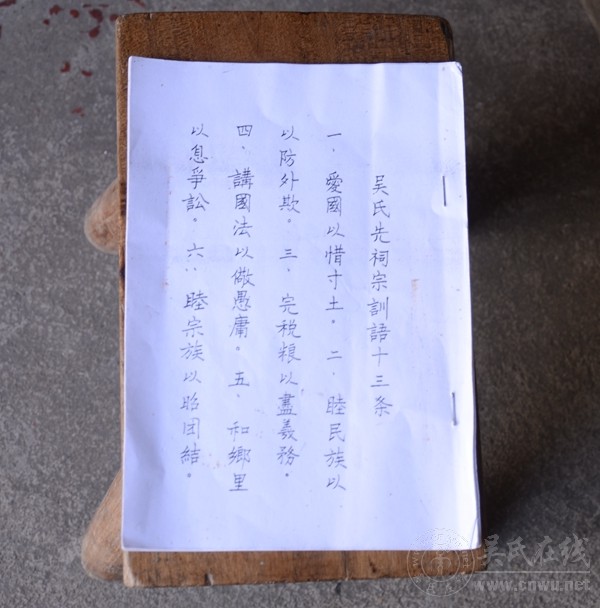 吴氏先祠宗訓語十三条
一．愛國以惜寸土。二．睦民族以
以防外欺。三．完税粮以盡義務。
四．講國法以儆愚庸。五．和鄉里
以息爭訟。六：睦宗族以昭团结。
吴氏在线
www.cnwu.net